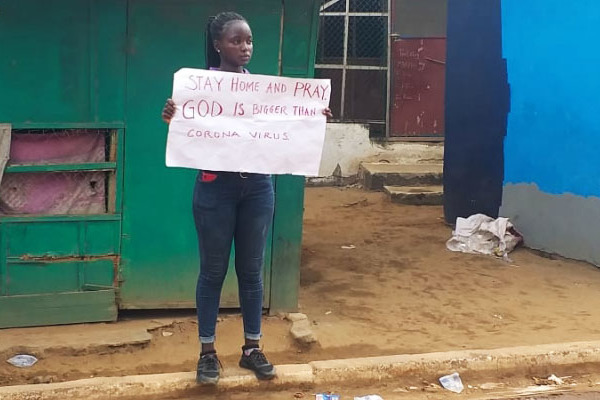 STAY HOME AND PRAY.
GOD IS BIGGER THAN
CORONA VIRUS.